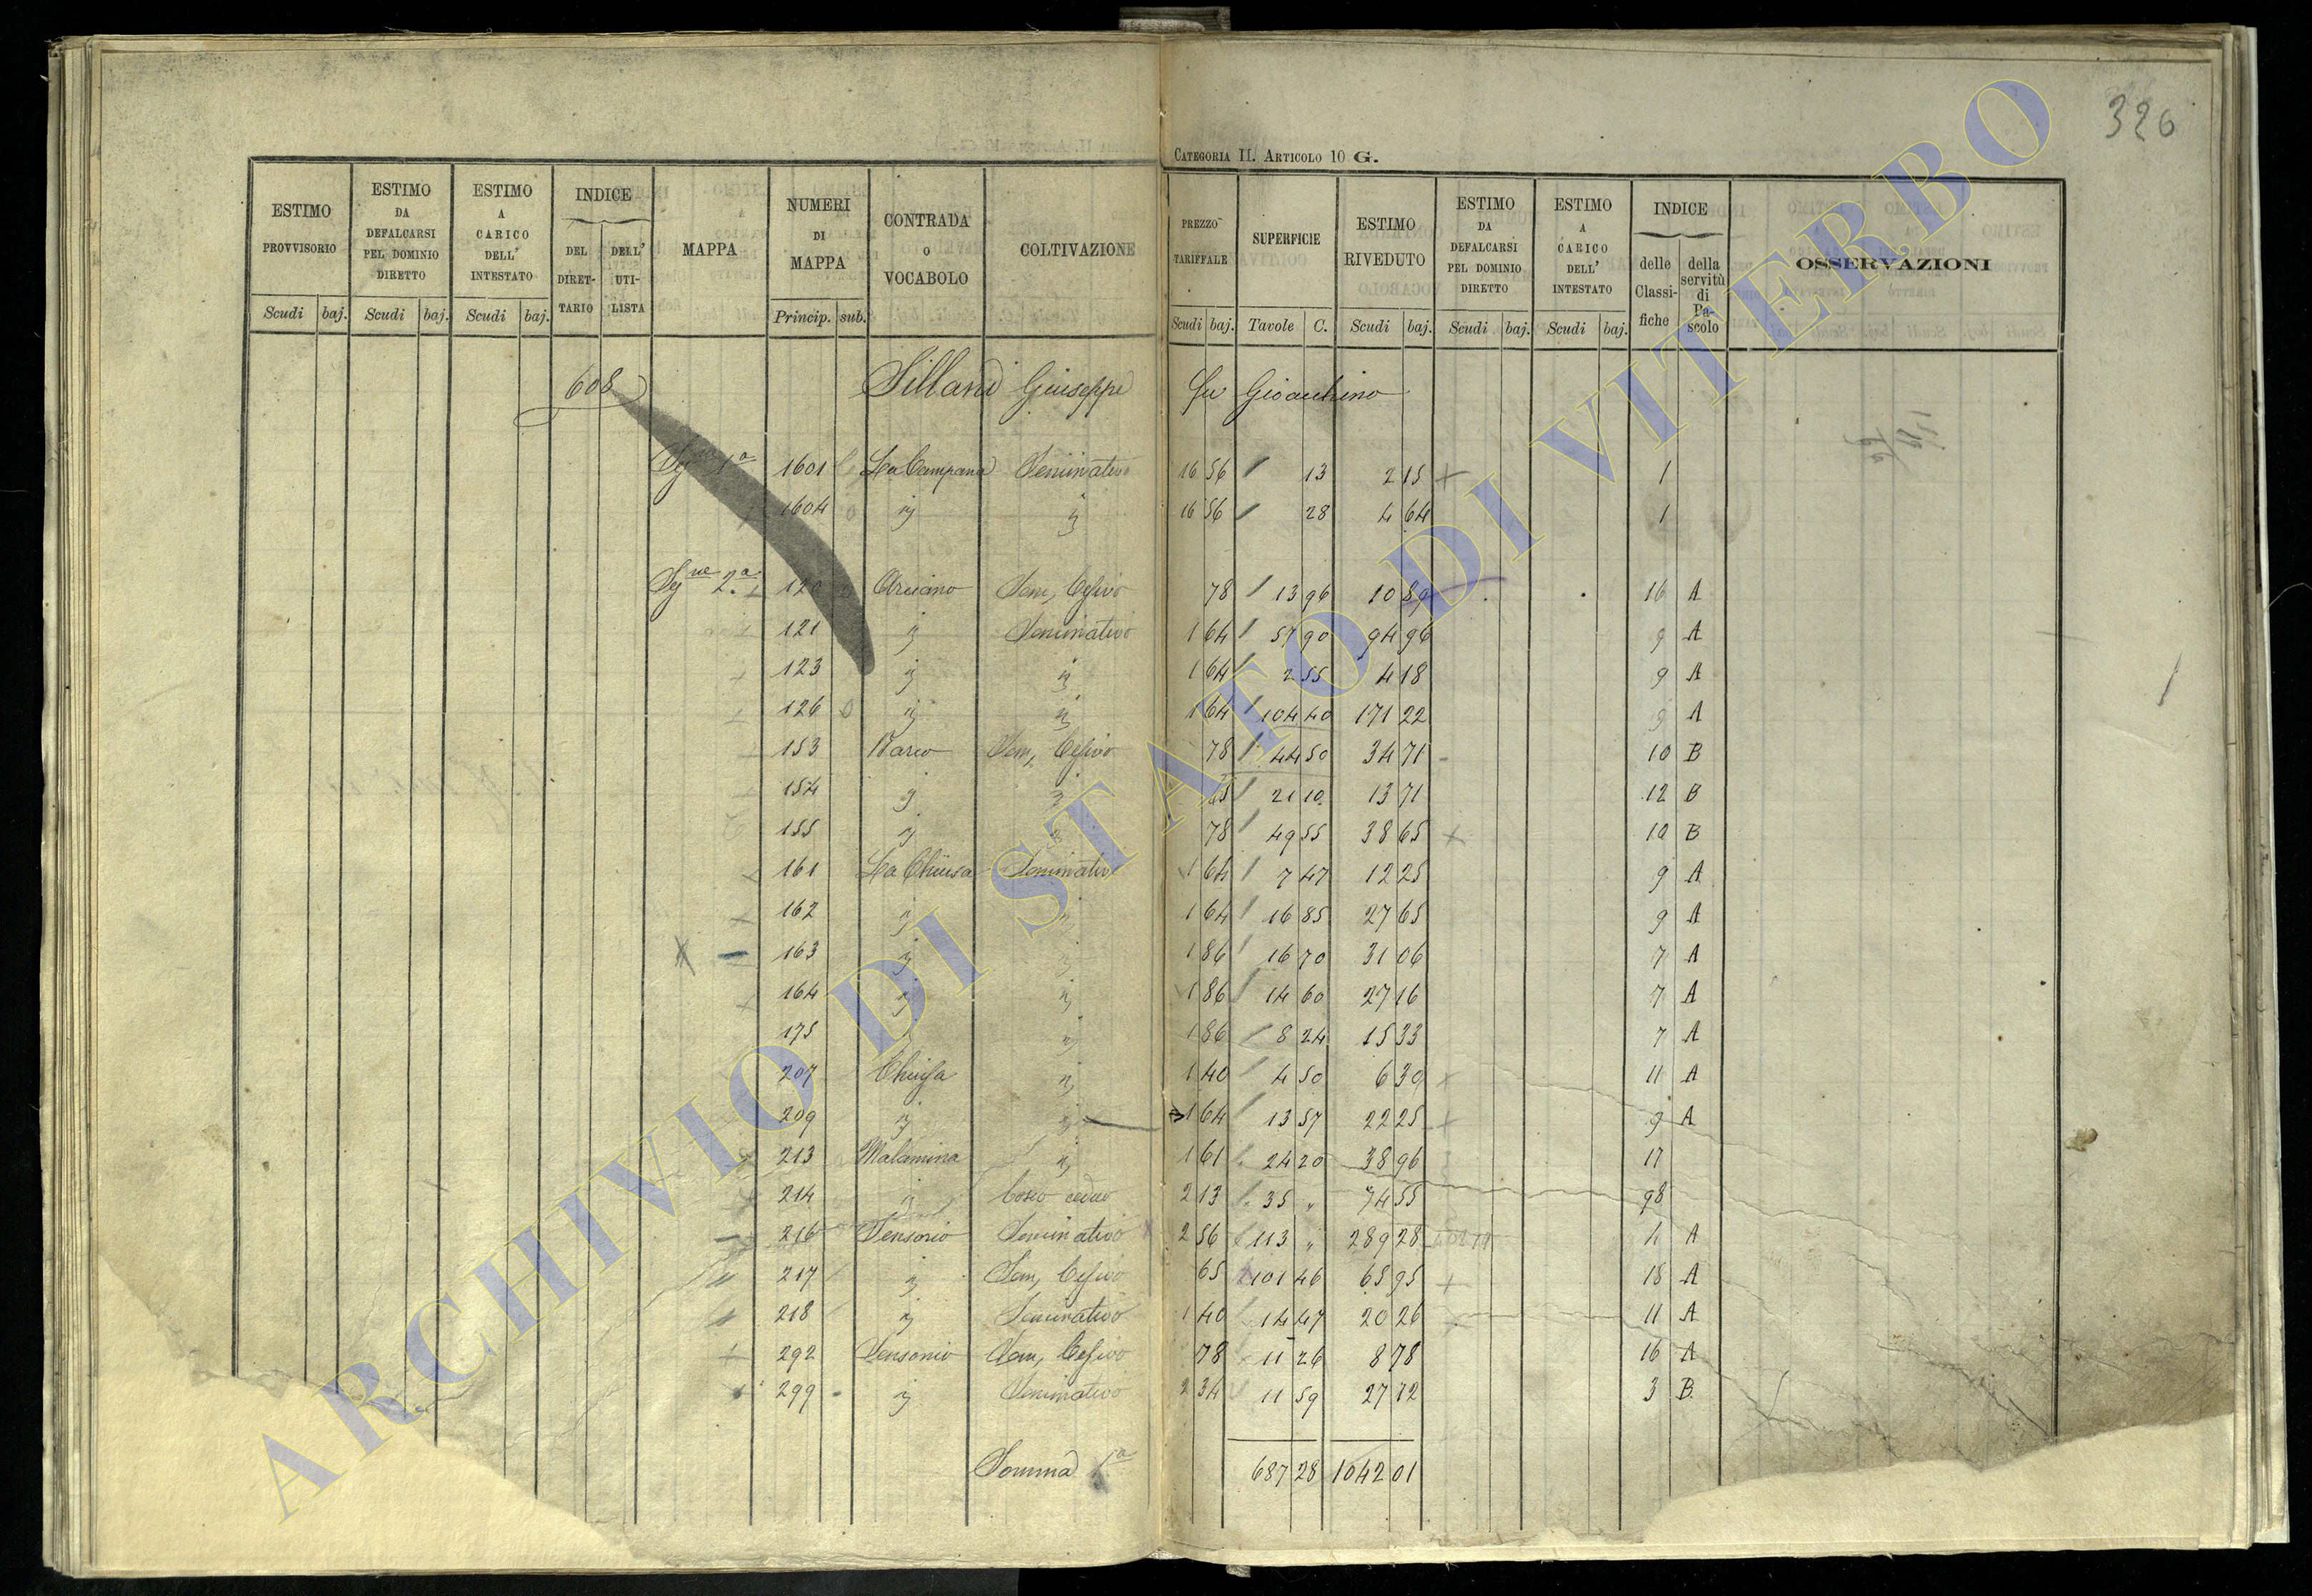 326
CATEGORIA II. ARTICOLO 10 G.
ESTIMO PROVVISORIO | ESTIMO DA DEFALCARSI PEL DOMINIO DIRETTO | ESTIMO A CARICO DELL' INTESTATO | INDICE DEL DIRETTARIO | DELL' UTILISTA | MAPPA | NUMERI DI MAPPA | CONTRADA O VOCABOLO | COLTIVAZIONE | PREZZO TARIFFALE | SUPERFICIE | ESTIMO RIVEDUTO | ESTIMO DA DEFALCARSI PEL DOMINIO DIRETTO | ESTIMO A CARICO DELL' INTESTATO | INDICE delle Classifiche | della servitù di Pascolo | OSSERVAZIONI
Scudi baj. Scudi baj. Scudi baj. Princip. sub. Scudi baj. Tavole C. Scudi baj. Scudi baj. Scudi baj.
608 Sillani Giuseppe fu Gioacchino
1ª 1601 La Campana Seminativo 16 56 13 2 15 1
1604 " " 16 56 28 4 64 1
Sezne 2ª 120 Sem, Cesivo 78 13 96 10 89 16 A
121 " Seminativo 1 64 57 90 94 96 9 A
123 " " 1 64 2 55 4 18 9 A
126 " " 1 64 104 40 171 22 9 A
153 Barco Sem, Cesivo 78 44 50 34 71 10 B
154 " " 65 21 10 13 71 12 B
155 " " 78 49 55 38 65 10 B
161 La Chiusa Seminativo 1 64 7 47 12 25 9 A
162 " " 1 64 16 85 27 65 9 A
163 " " 1 86 16 70 31 06 7 A
164 " " 1 86 14 60 27 16 7 A
175 " " 1 86 8 24 15 33 7 A
207 Chiusa " 1 40 4 50 6 30 11 A
209 " " 1 64 13 57 22 25 9 A
213 Malamina " 1 61 24 20 38 96 17
214 " Bosco ceduo 2 13 35 " 74 55 98
216 Sensorio Seminativo 2 56 113 " 289 28 4 A
217 " Sem, Cesivo 65 101 46 65 95 18 A
218 " Seminativo 1 40 14 47 20 26 11 A
292 Sensonio Sem, Cesivo 78 11 26 8 78 16 A
299 " Seminativo 2 34 11 59 27 12 3 B
Somma 1ª 687 28 1042 01
ARCHIVIO DI STATO DI VITERBO